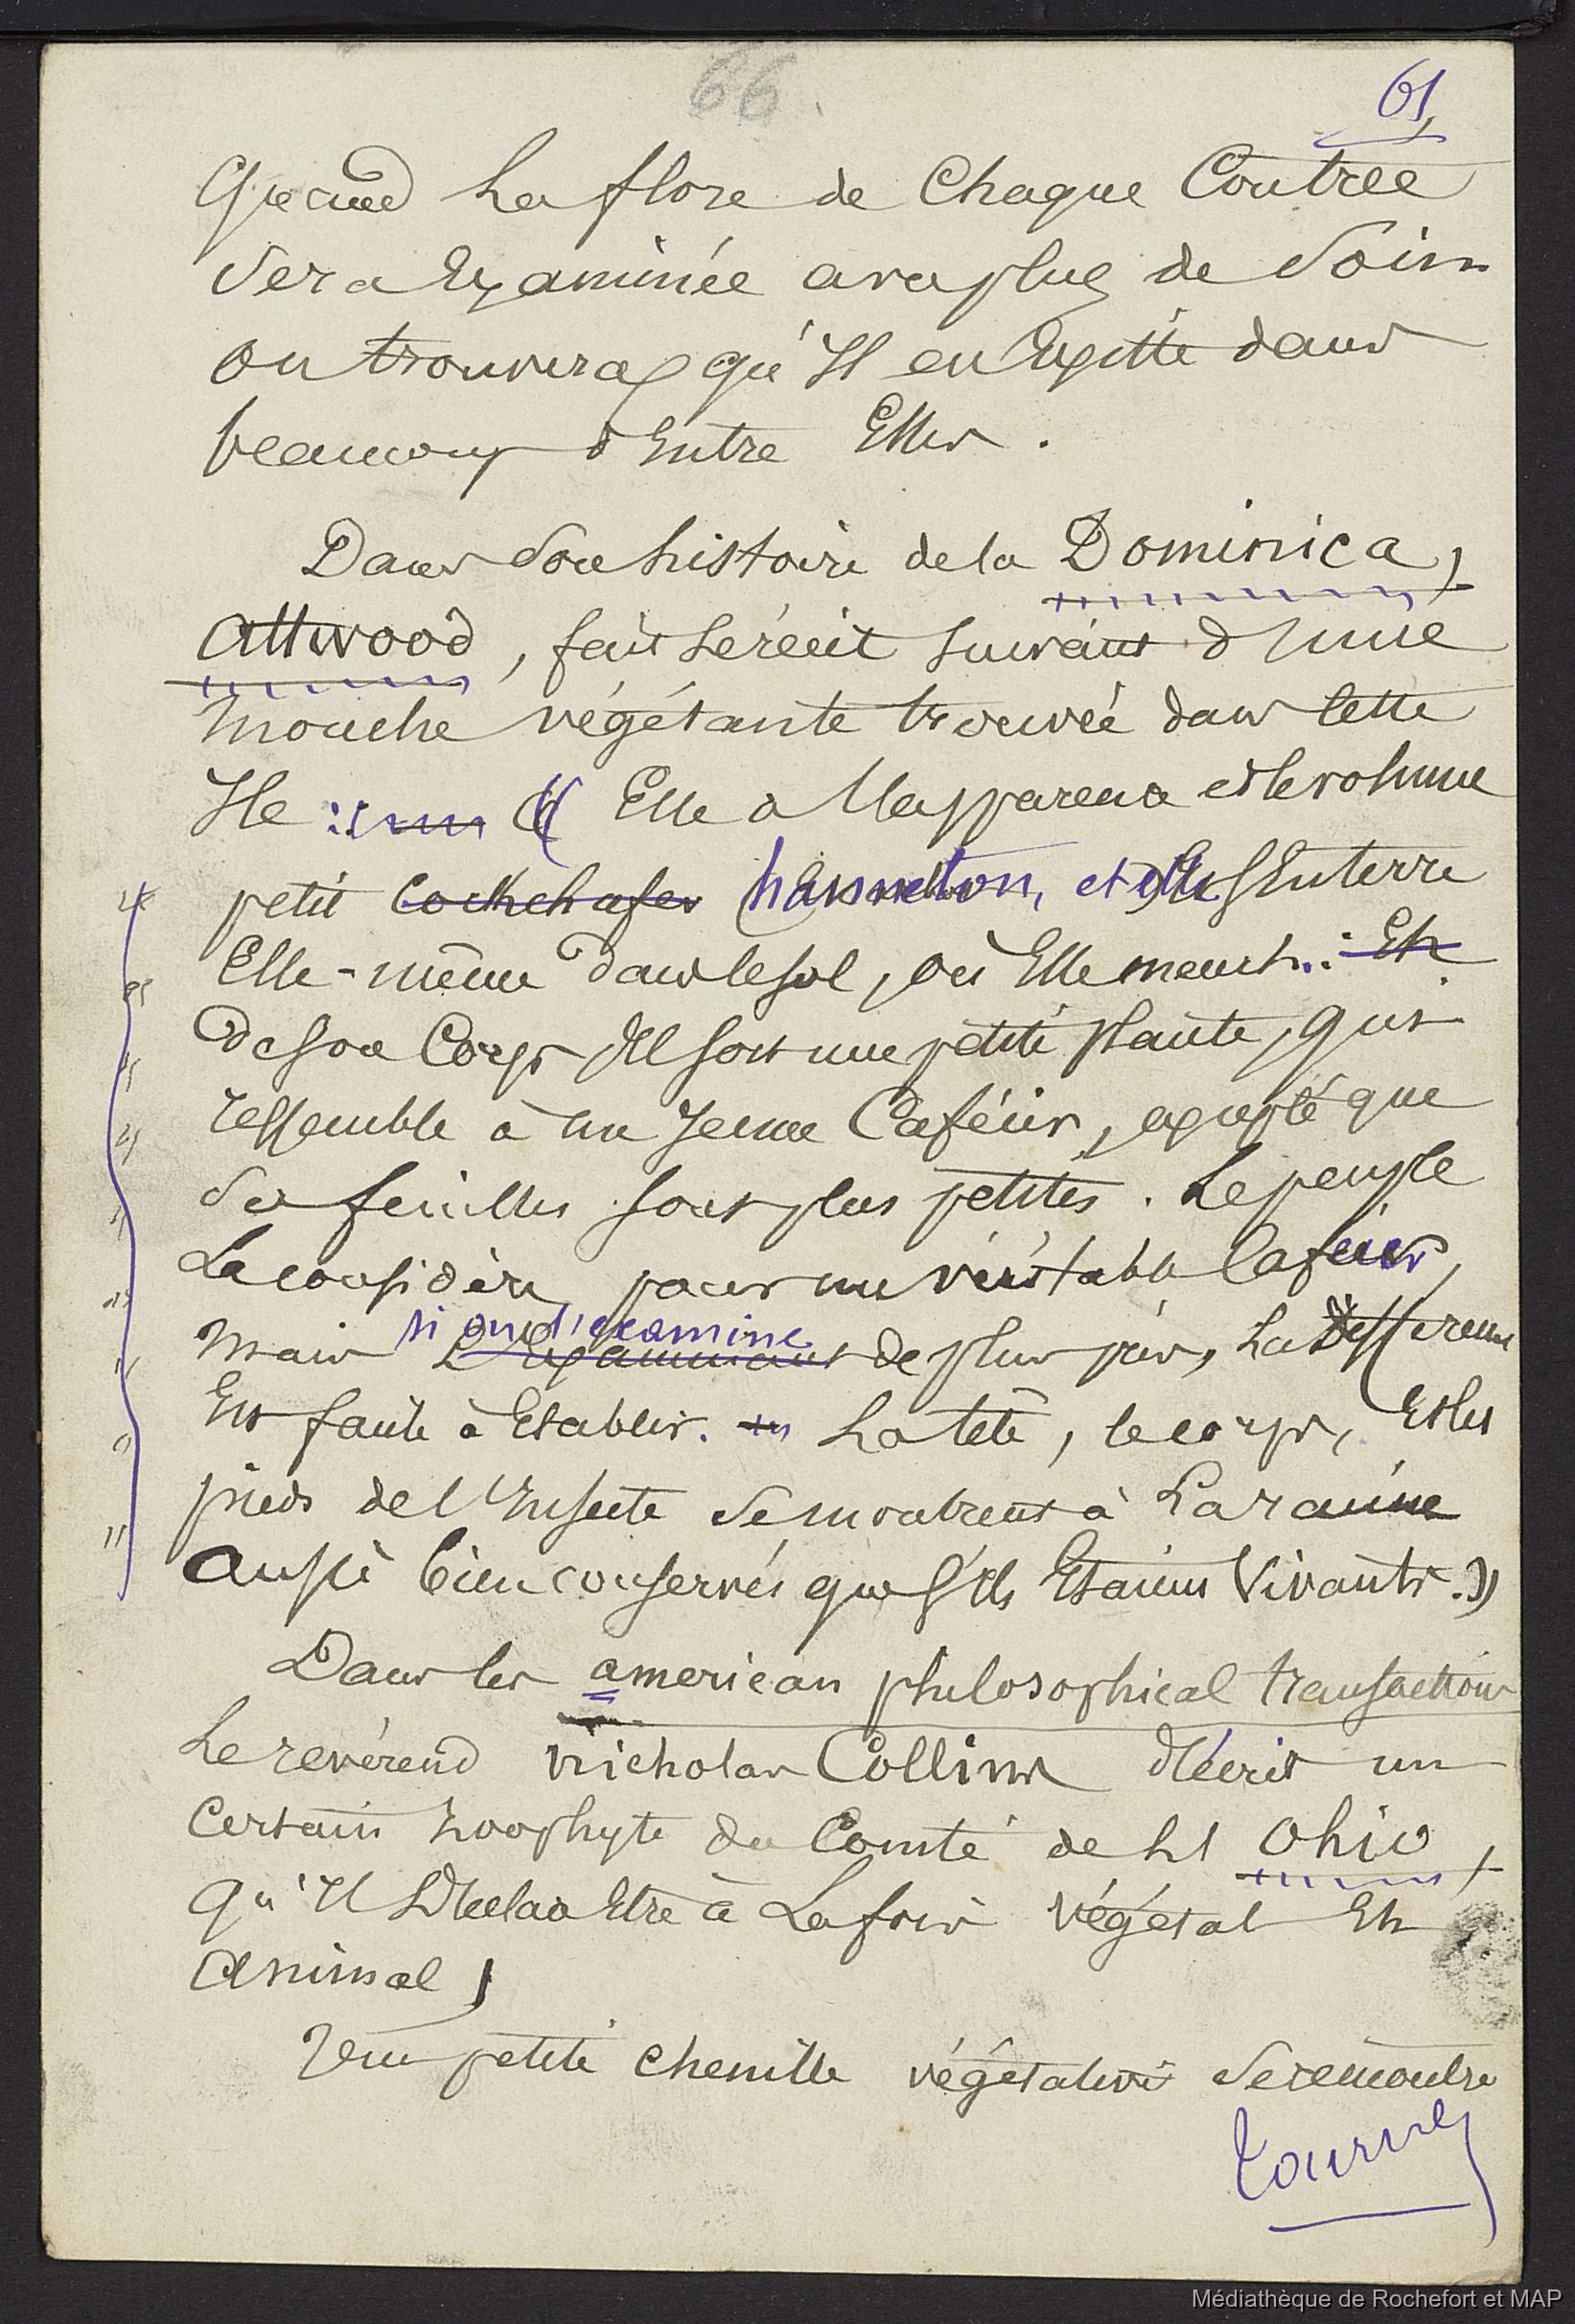 66.
61,
Quand La flore de Chaque Contrée
Sera Examinée avec plus de Soin
on trouvera qu'Il en Existe dans
beaucoup d'Entre Elles.
Dans Son histoire de la Dominica,
Attwood, fait le récit suivant d'une
Mouche végétante trouvée dans cette
Ile : « Elle a l'apparence et le volume
petit Cockchafer hanneton, et elle s'Enterre
Elle-même dans le sol, où Elle meurt. Et
De son Corps Il sort une petite plante, qui
ressemble à un Jeune Caféier, excepté que
Ses feuilles sont plus petites. Le peuple
Le considère pour un véritable Caféier,
si on l'examine
Mais L'Examinant de plus près, La différence
Est facile à Etablir. La tête, le corps, Et les
pieds de l'Insecte Se montrent à La racine
Aussi bien conservés que s'Ils Etaient Vivants. »
Dans les american philosophical transactions
Le révérend nicholas Collins décrit un
Certain zoophyte du Comté de l'Ohio,
Qu'Il Déclara Etre à La fois végétal Et
Animal,
Une petite chenille végétative Se rencontre
Tournez
Médiathèque de Rochefort et MAP